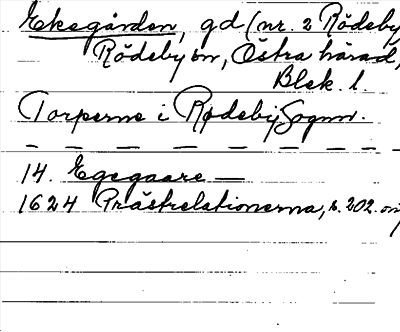 Eksgården, gd (nr. 2 Rödeby
Rödeby sn, Östra härad,
Blek. l.
Torperne i Rødeby Sognn.
14. Egegaare —
1624 Prästrelationerna, s. 202.